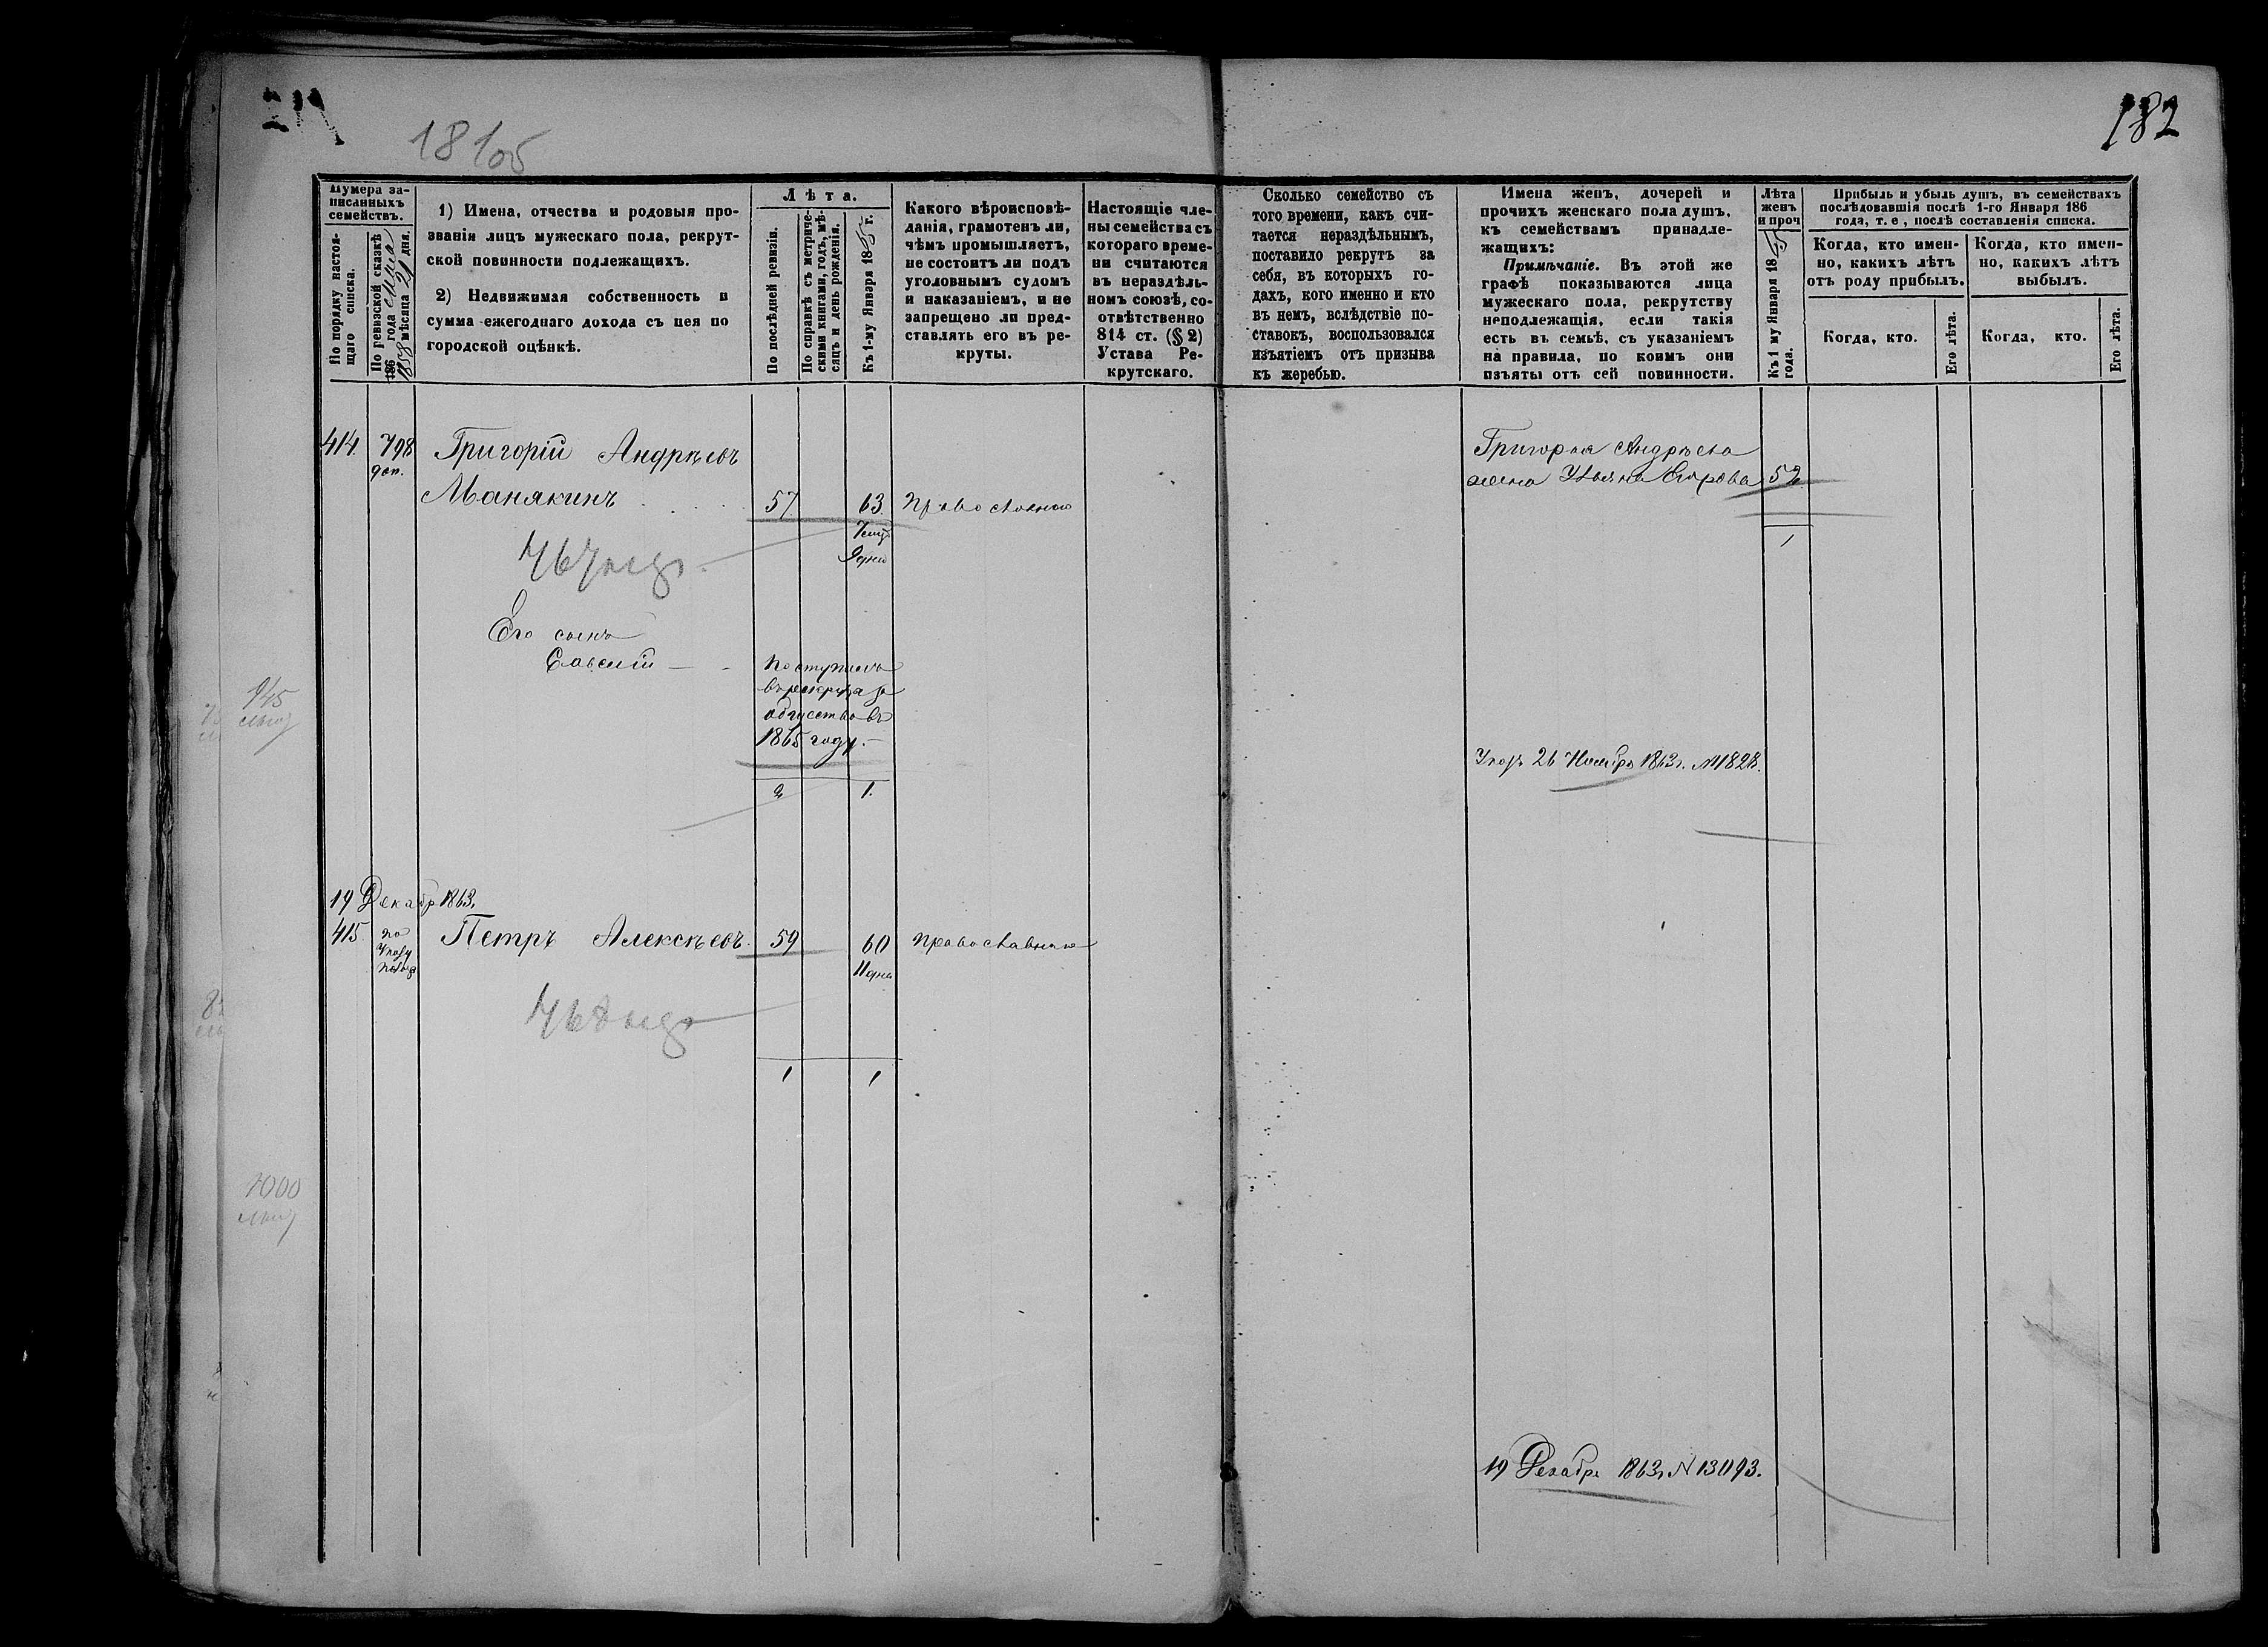 182
Нумера за-
писанныхъ
семействъ.
По порядку настоя-
щаго списка.
По ревизской сказкѣ
186 года
1858 мѣсяца 21 дня.
1) Имена, отчества и родовыя про-
званія лицъ мужескаго пола, рекрут-
ской повинности подлежащихъ.
2) Недвижимая собственность и
сумма ежегоднаго дохода съ нея по
городской оцѣнкѣ.
Лѣта.
По послѣдней ревизіи.
По справкѣ съ метриче-
скими книгами, годъ, мѣ-
сяцъ и день рожденія.
Къ 1-му Января 1865 г.
Какого вѣроисповѣ-
данія, грамотенъ ли,
чѣмъ промышляетъ,
не состоитъ ли подъ
уголовнымъ судомъ
и наказаніемъ, и не
запрещено ли пред-
ставлять его въ ре-
круты.
Настоящіе чле-
ны семейства съ
котораго време-
ни считаются
въ нераздѣль-
номъ союзѣ, со-
отвѣтственно
814 ст. (§ 2)
Устава Ре-
крутскаго.
Сколько семейство съ
того времени, какъ счи-
тается нераздѣльнымъ,
поставило рекрутъ за
себя, въ которыхъ го-
дахъ, кого именно и кто
въ немъ, вслѣдствіе по-
ставокъ, воспользовался
изъятіемъ отъ призыва
къ жеребью.
Имена женъ, дочерей и
прочихъ женскаго пола душъ,
къ семействамъ принадле-
жащихъ:
Примѣчаніе. Въ этой же
графѣ показываются лица
мужескаго пола, рекрутству
неподлежащія, если такія
есть въ семьѣ, съ указаніемъ
на правила, по коимъ они
изъяты отъ сей повинности.
Лѣта
женъ
и проч
Къ 1 му Января 1865
года.
Прибыль и убыль душъ, въ семействахъ
послѣдовавшія послѣ 1-го Января 186
года, т. е., послѣ составленія списка.
Когда, кто имен-
но, какихъ лѣтъ
отъ роду прибылъ.
Когда, кто.
Его лѣта.
Когда, кто имен-
но, какихъ лѣтъ
выбылъ.
Когда, кто.
Его лѣта.
414. 798 Григорій Андрѣевъ
доп.
Манякинъ 57 63 Православнаго
7 мѣс
9 дней
Григорья Андрѣева
жена Ульяна Егорова 52
1
Его сынъ
Савелій
поступилъ
въ рекрута за
общество въ
1865 году.
2 1.
Указъ 26 Ноября 1863г. №1828.
19 Декабр 1863г
415. по Петръ Алексѣевъ 59 60 православнаго
Указу
11 дней
1 1
19 Декабря 1863г № 13093.
945
1000